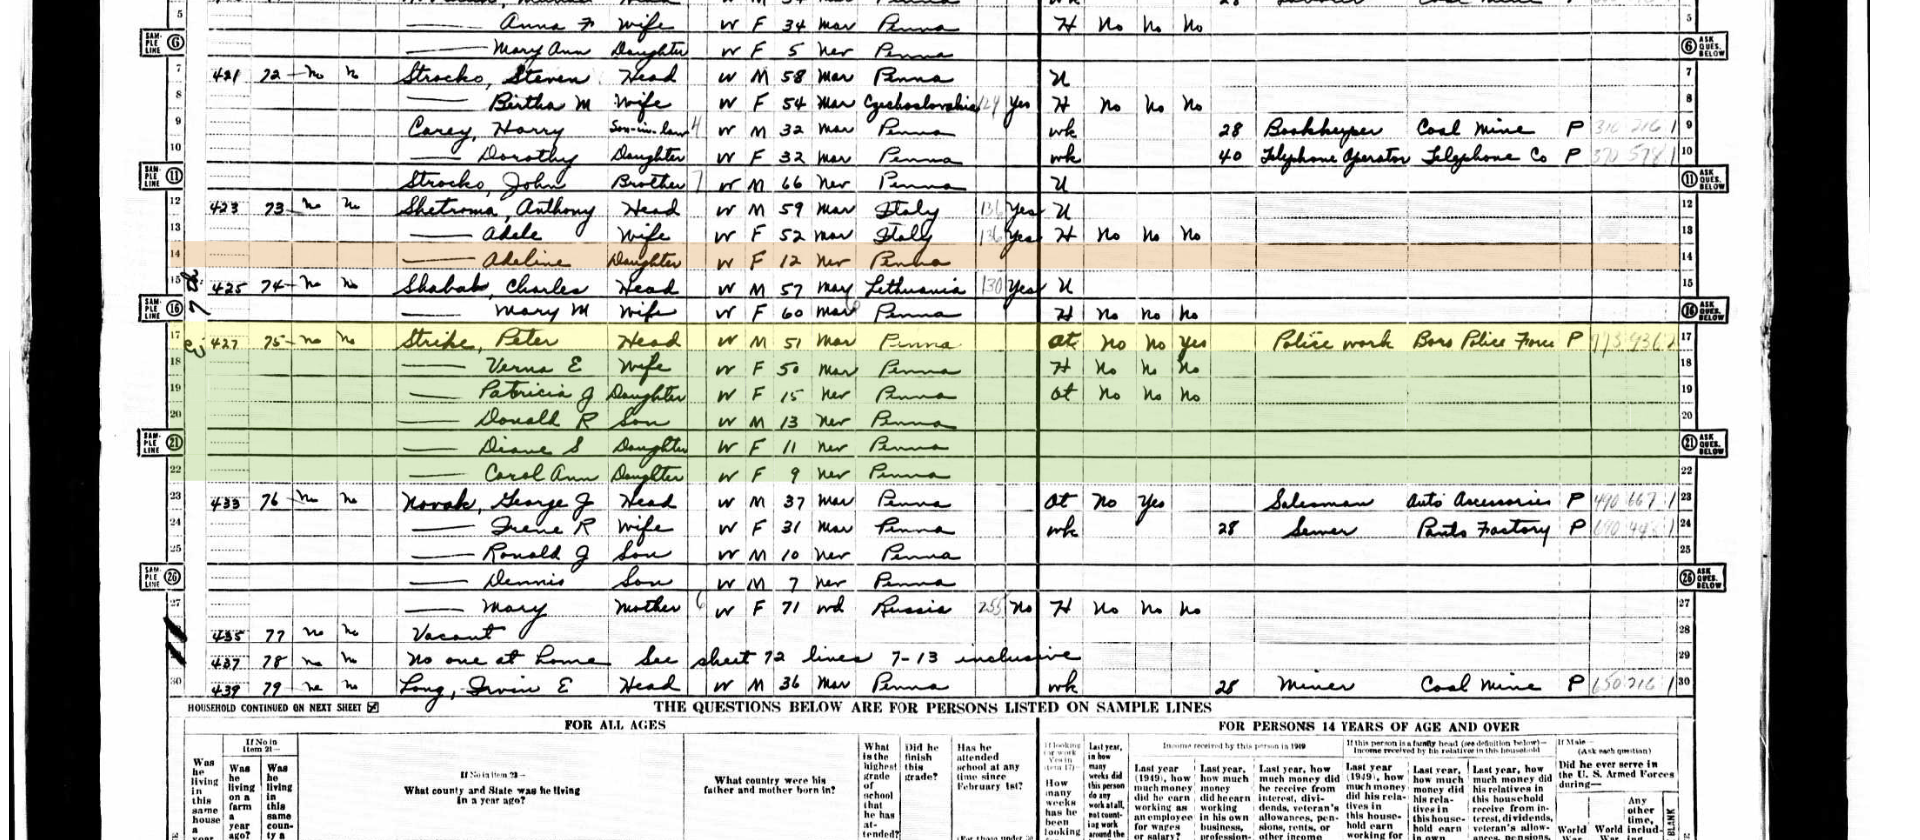 5 Anna F Wife W F 34 Mar Penna H No No No 5
SAM- PLE LINE 6 Mary Ann Daughter W F 5 Nev Penna 6 ASK QUES. BELOW
7 421 72 No No Strocko, Steven Head W M 58 Mar Penna U 7
8 Birtha M Wife W F 54 Mar Czechoslovakia Yes H No No No 8
9 Carey, Harry Son-in-law W M 32 Mar Penna wk 28 Bookkeeper Coal Mine P 9
10 Dorothy Daughter W F 32 Mar Penna wk 40 Telephone Operator Telephone Co P 10
SAM- PLE LINE 11 Strocko, John Brother W M 66 Nev Penna U 11 ASK QUES. BELOW
12 423 73 No No Shetroma, Anthony Head W M 59 Mar Italy Yes U 12
13 Adele Wife W F 52 Mar Italy Yes H No No No 13
14 Adeline Daughter W F 12 Nev Penna 14
15 425 74 No No Shabak, Charles Head W M 57 Mar Lithuania 130 Yes U 15
SAM- PLE LINE 16 Mary M Wife W F 60 Mar Penna H No No No 16 ASK QUES. BELOW
17 427 75 No No Strike, Peter Head W M 51 Mar Penna ot No No Yes Police work Boro Police Force P 17
18 Verna E Wife W F 50 Mar Penna H No No No 18
19 Patricia J Daughter W F 15 Nev Penna ot No No No 19
20 Donald R Son W M 13 Nev Penna 20
SAM- PLE LINE 21 Diane S Daughter W F 11 Nev Penna 21 ASK QUES. BELOW
22 Carol Ann Daughter W F 9 Nev Penna 22
23 433 76 No No Novak, George J Head W M 37 Mar Penna ot No Yes Salesman Auto Accessories P 23
24 Irene R Wife W F 31 Mar Penna wk 28 Sewer Pants Factory P 24
25 Ronald J Son W M 10 Nev Penna 25
SAM- PLE LINE 26 Dennis Son W M 7 Nev Penna 26 ASK QUES. BELOW
27 Mary Mother W F 71 wd Russia 255 No H No No No 27
435 77 No No Vacant 28
437 78 No No No one at home See sheet 72 lines 7-13 inclusive 29
30 439 79 No No Long, Irvin E Head W M 36 Mar Penna wk 28 Miner Coal Mine P 30
HOUSEHOLD CONTINUED ON NEXT SHEET THE QUESTIONS BELOW ARE FOR PERSONS LISTED ON SAMPLE LINES
FOR ALL AGES FOR PERSONS 14 YEARS OF AGE AND OVER
Was he living in this same house a
If No in item 21—
Was he living on a farm a year ago?
Was he living in this same coun- ty a
If No in item 23—
What county and State was he living in a year ago?
What country were his father and mother born in?
What is the highest grade of school that he has at- tended?
Did he finish this grade?
Has he attended school at any time since February 1st?
How many weeks has he been looking
Last year, in how many weeks did this person do any work at all, not count- ing work around the
Income received by this person in 1949
Last year (1949), how much money did he earn working as an employee for wages or salary?
Last year, how much money did he earn working in his own business, profession-
Last year, how much money did he receive from interest, divi- dends, veteran's allowances, pen- sions, rents, or other income
If this person is a family head (see definition below)— Income received by his relatives in this household
Last year (1949), how much money did his rela- tives in this house- hold earn working for
Last year, how much money did his rela- tives in this house- hold earn in own
Last year, how much money did his relatives in this household receive from in- terest, dividends, veteran's allow- ances, pensions,
If Male— (Ask each question)
Did he ever serve in the U. S. Armed Forces during—
World World Any other time, includ- ing
BLANK